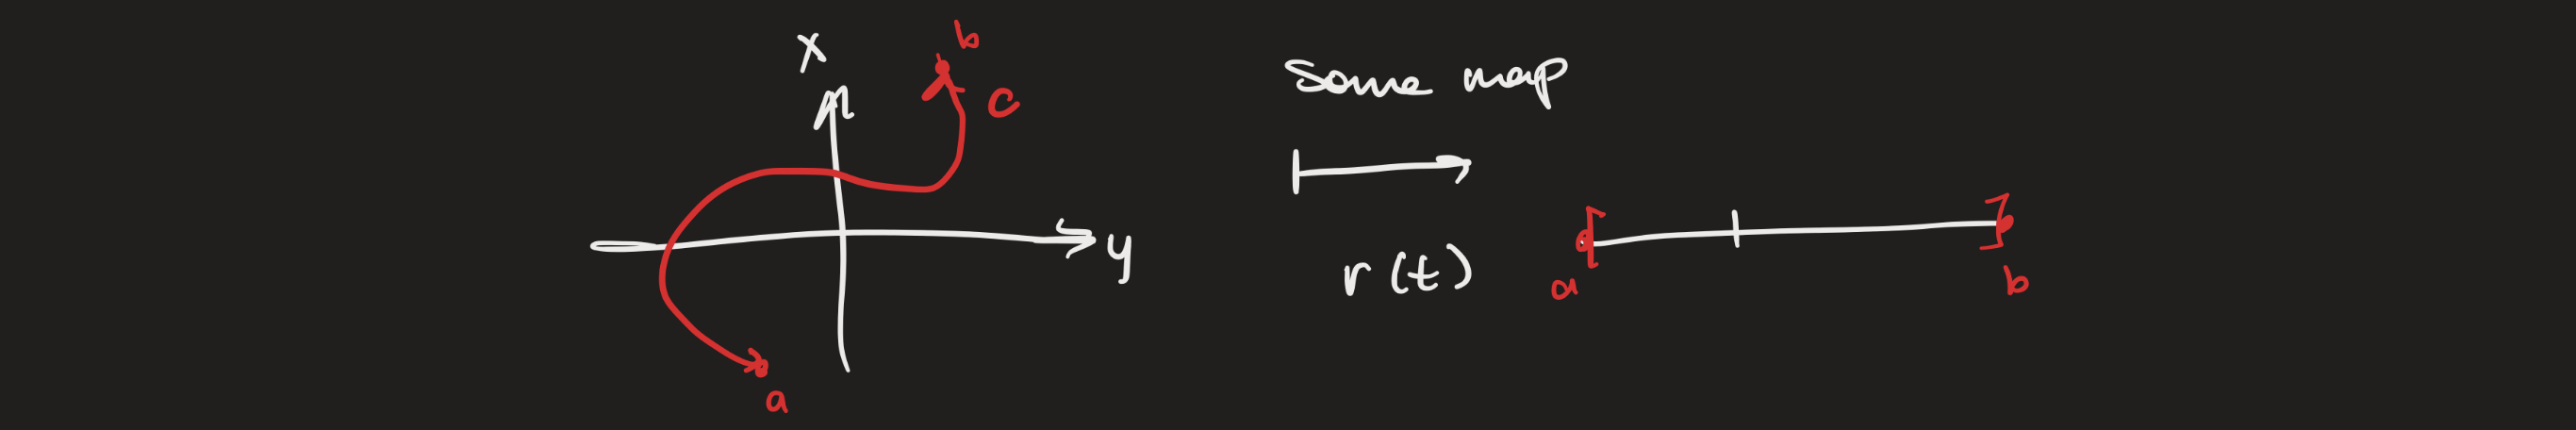 x
b
c
y
a
some map
r(t)
a
b